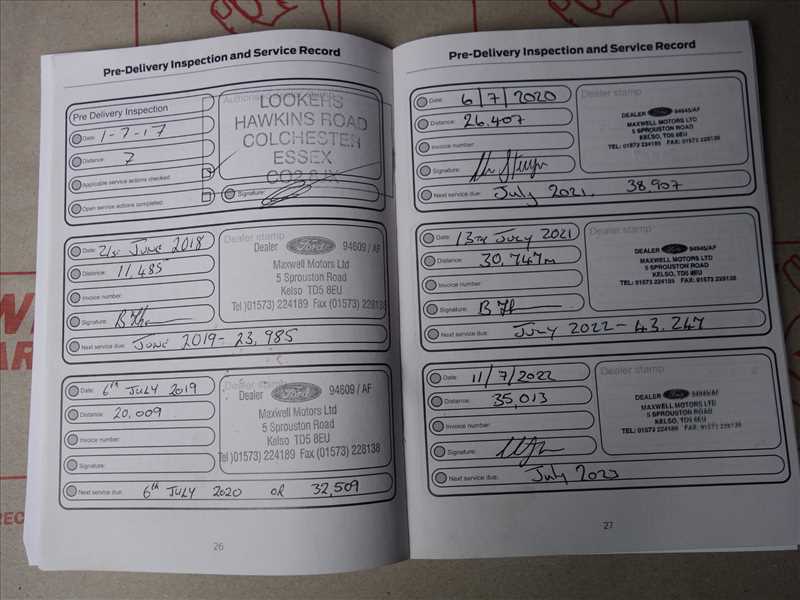 Pre-Delivery Inspection and Service Record
Pre Delivery Inspection
Date: 1-7-17
Distance: 7
Applicable service actions checked
Open service actions completed
LOOKERS
HAWKINS ROAD
COLCHESTER
ESSEX
CO2 8JX
Signature:
Date: 21st June 2018
Distance: 11,485
Invoice number:
Signature:
Next service due: June 2019 - 23,985
Dealer stamp
Dealer Ford 94609 / AF
Maxwell Motors Ltd
5 Sprouston Road
Kelso TD5 8EU
Tel )01573) 224189 Fax (01573) 228138
Date: 6th July 2019
Distance: 20,009
Invoice number:
Signature:
Next service due: 6th July 2020 OR 32,509
Dealer stamp
Dealer Ford 94609 / AF
Maxwell Motors Ltd
5 Sprouston Road
Kelso TD5 8EU
Tel )01573) 224189 Fax (01573) 228138
26
Pre-Delivery Inspection and Service Record
Date: 6/7/2020
Distance: 26.407
Invoice number:
Signature:
Next service due: July 2021. 38,907
Dealer stamp
DEALER Ford 94945/AF
MAXWELL MOTORS LTD
5 SPROUSTON ROAD
KELSO, TD5 8EU
TEL: 01573 224189 FAX: 01573 228138
Date: 13th July 2021
Distance: 30,747m
Invoice number:
Signature:
Next service due: July 2022 - 43.247
Dealer stamp
DEALER Ford 94945/AF
MAXWELL MOTORS LTD
5 SPROUSTON ROAD
KELSO, TD5 8EU
TEL: 01573 224189 FAX: 01573 228138
Date: 11/7/2022
Distance: 35,013
Invoice number:
Signature:
Next service due: July 2023
Dealer stamp
DEALER Ford 94945/AF
MAXWELL MOTORS LTD
5 SPROUSTON ROAD
KELSO, TD5 8EU
TEL: 01573 224189 FAX: 01573 228138
27